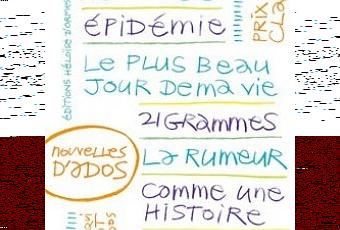 ÉPIDÉMIE
LE PLUS BEAU
JOUR DE MA VIE
21 GRAMMES
LA RUMEUR
COMME UNE
HISTOIRE
NOUVELLES
D'ADOS
ÉDITIONS HÉLOÏSE D'ORMES
PRIX